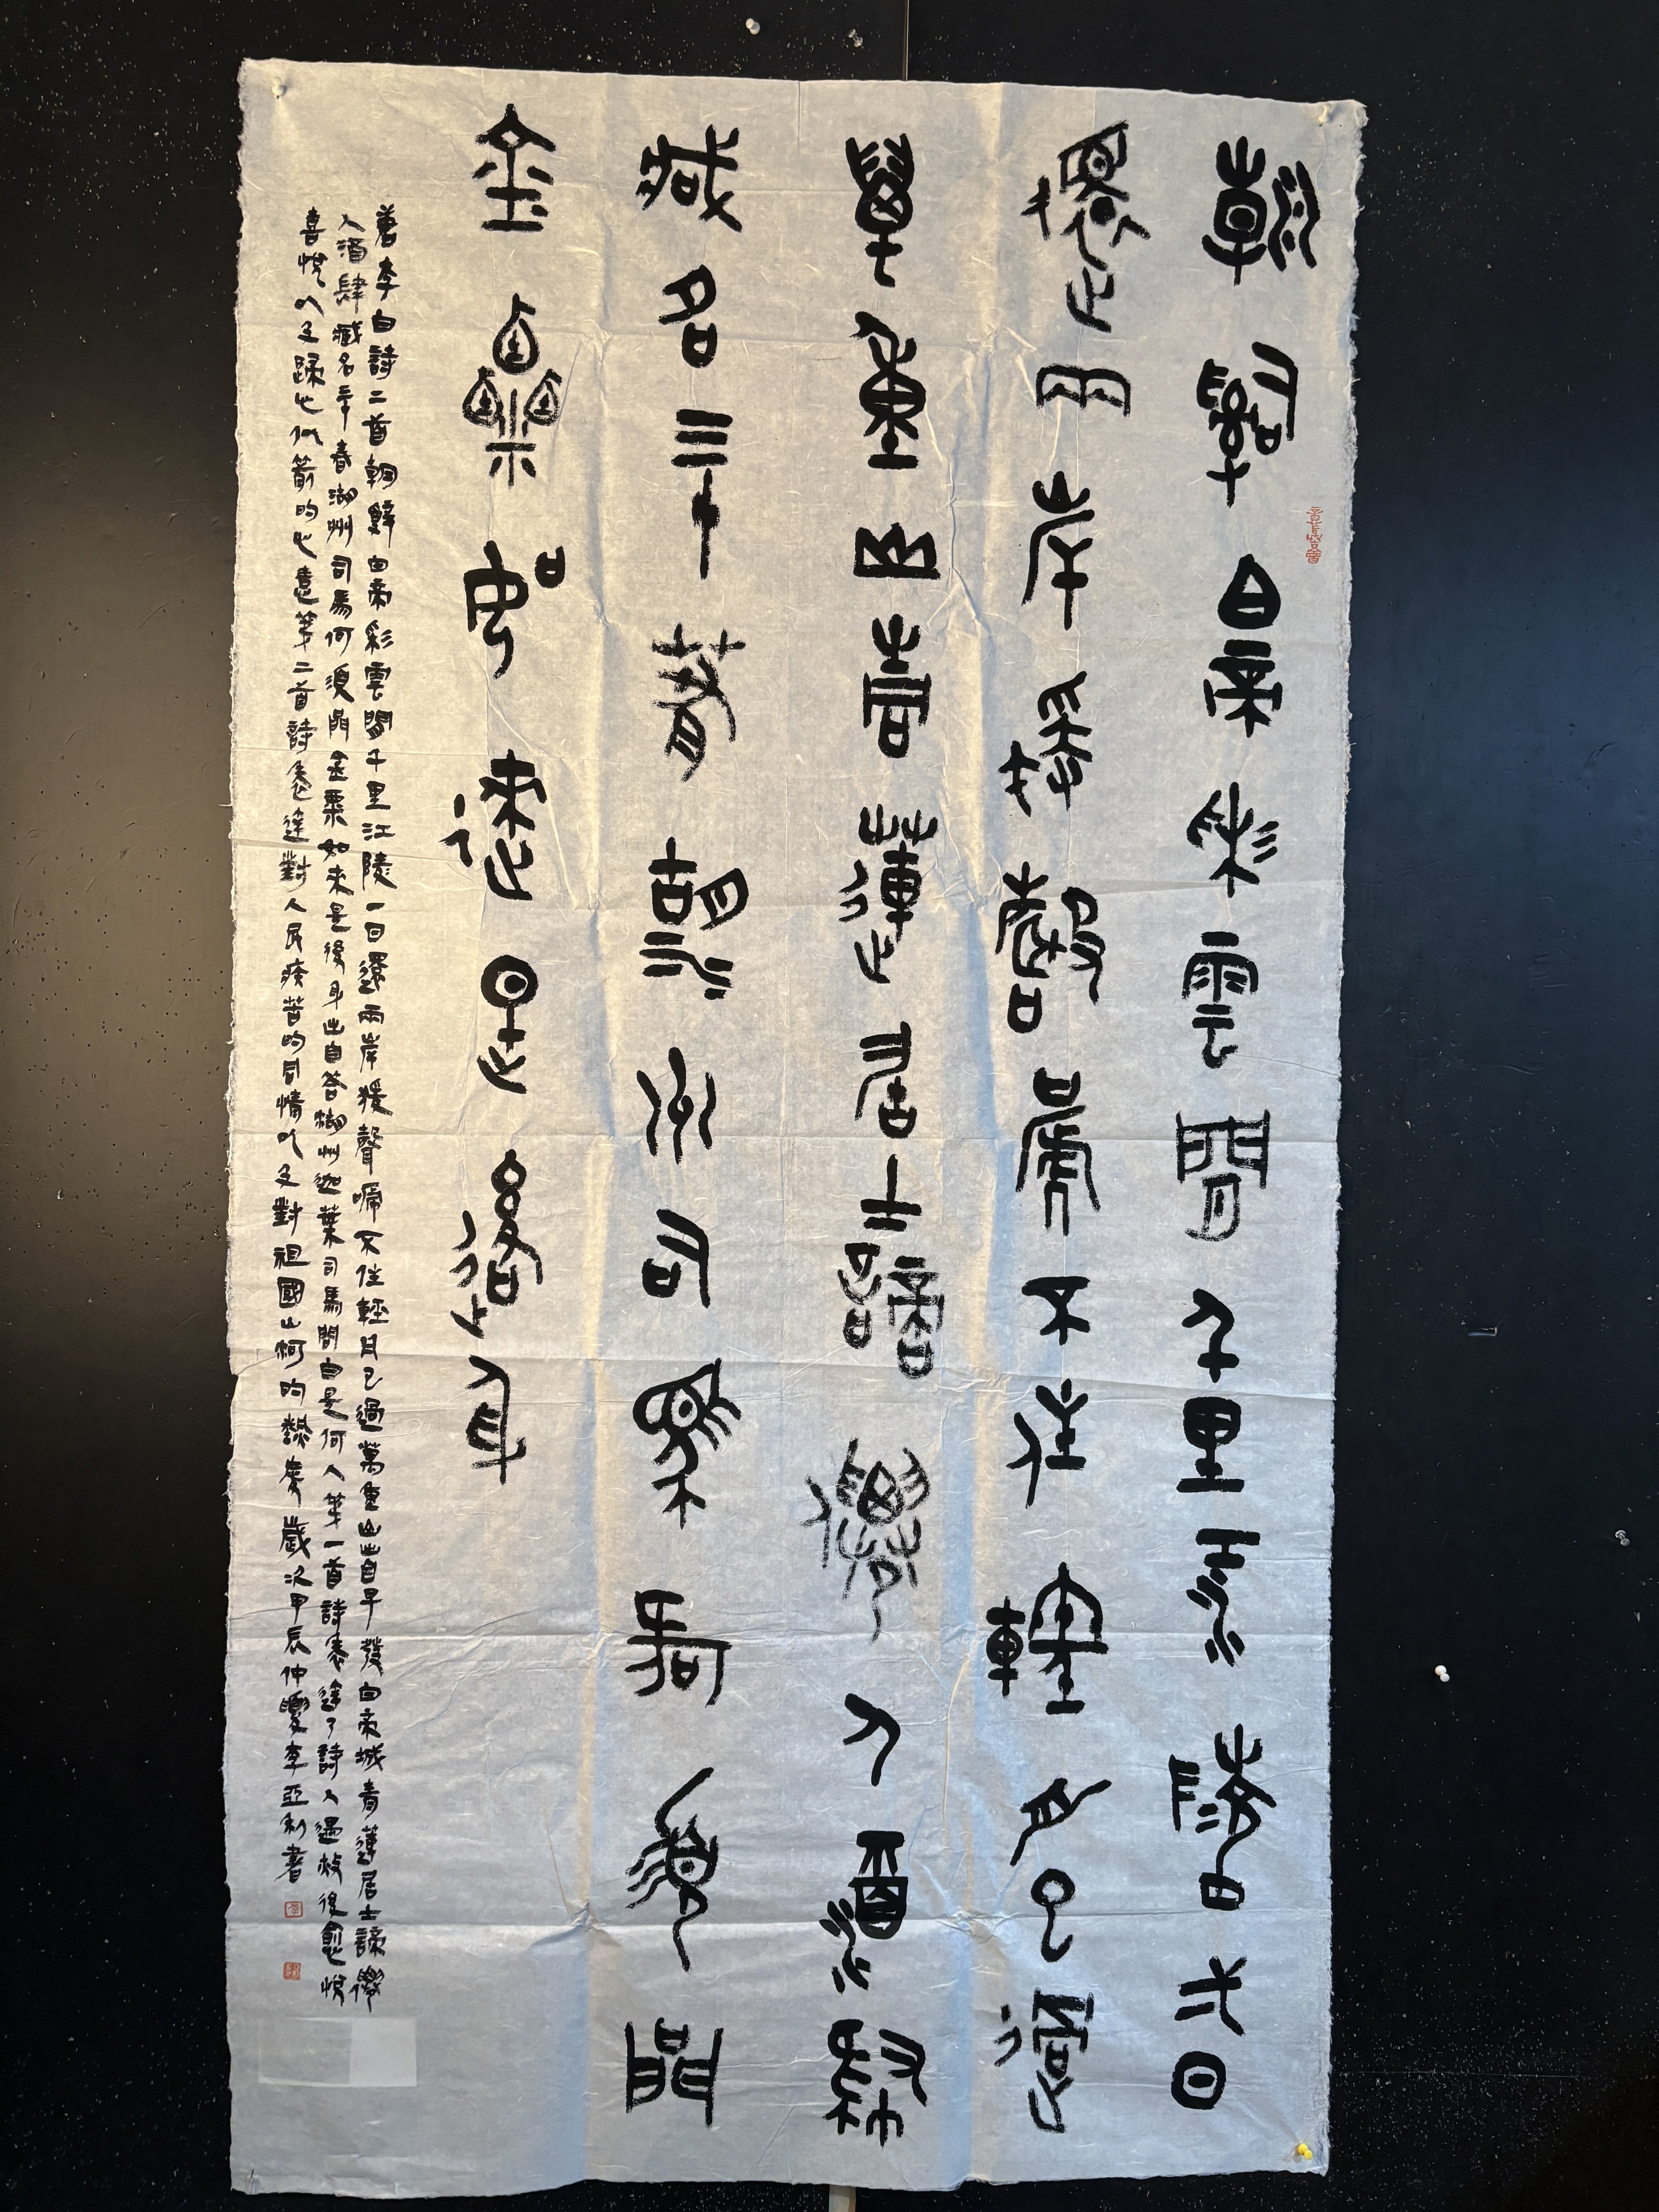 朝辭白帝彩雲間千里江陵弌日
還兩岸猿聲啼不住輕舟已過
萬重山青蓮居士謫僊人酒肆
臧名三十春湖州司馬何須問
金粟如來是後身
唐李白詩二首朝辭白帝彩雲間千里江陵一日還兩岸猿聲啼不住輕舟已過萬重山出自早發白帝城青蓮居士謫僊
人酒肆臧名三十春湖州司馬何須問金粟如來是後身出自答湖州迦葉司馬問白是何人第一首詩表達了詩人遇赦後愈悅
喜悅以及歸心似箭的心意第二首詩表達對人民疾苦的同情以及對祖國山河的熱愛歲次甲辰仲夏李亞利書